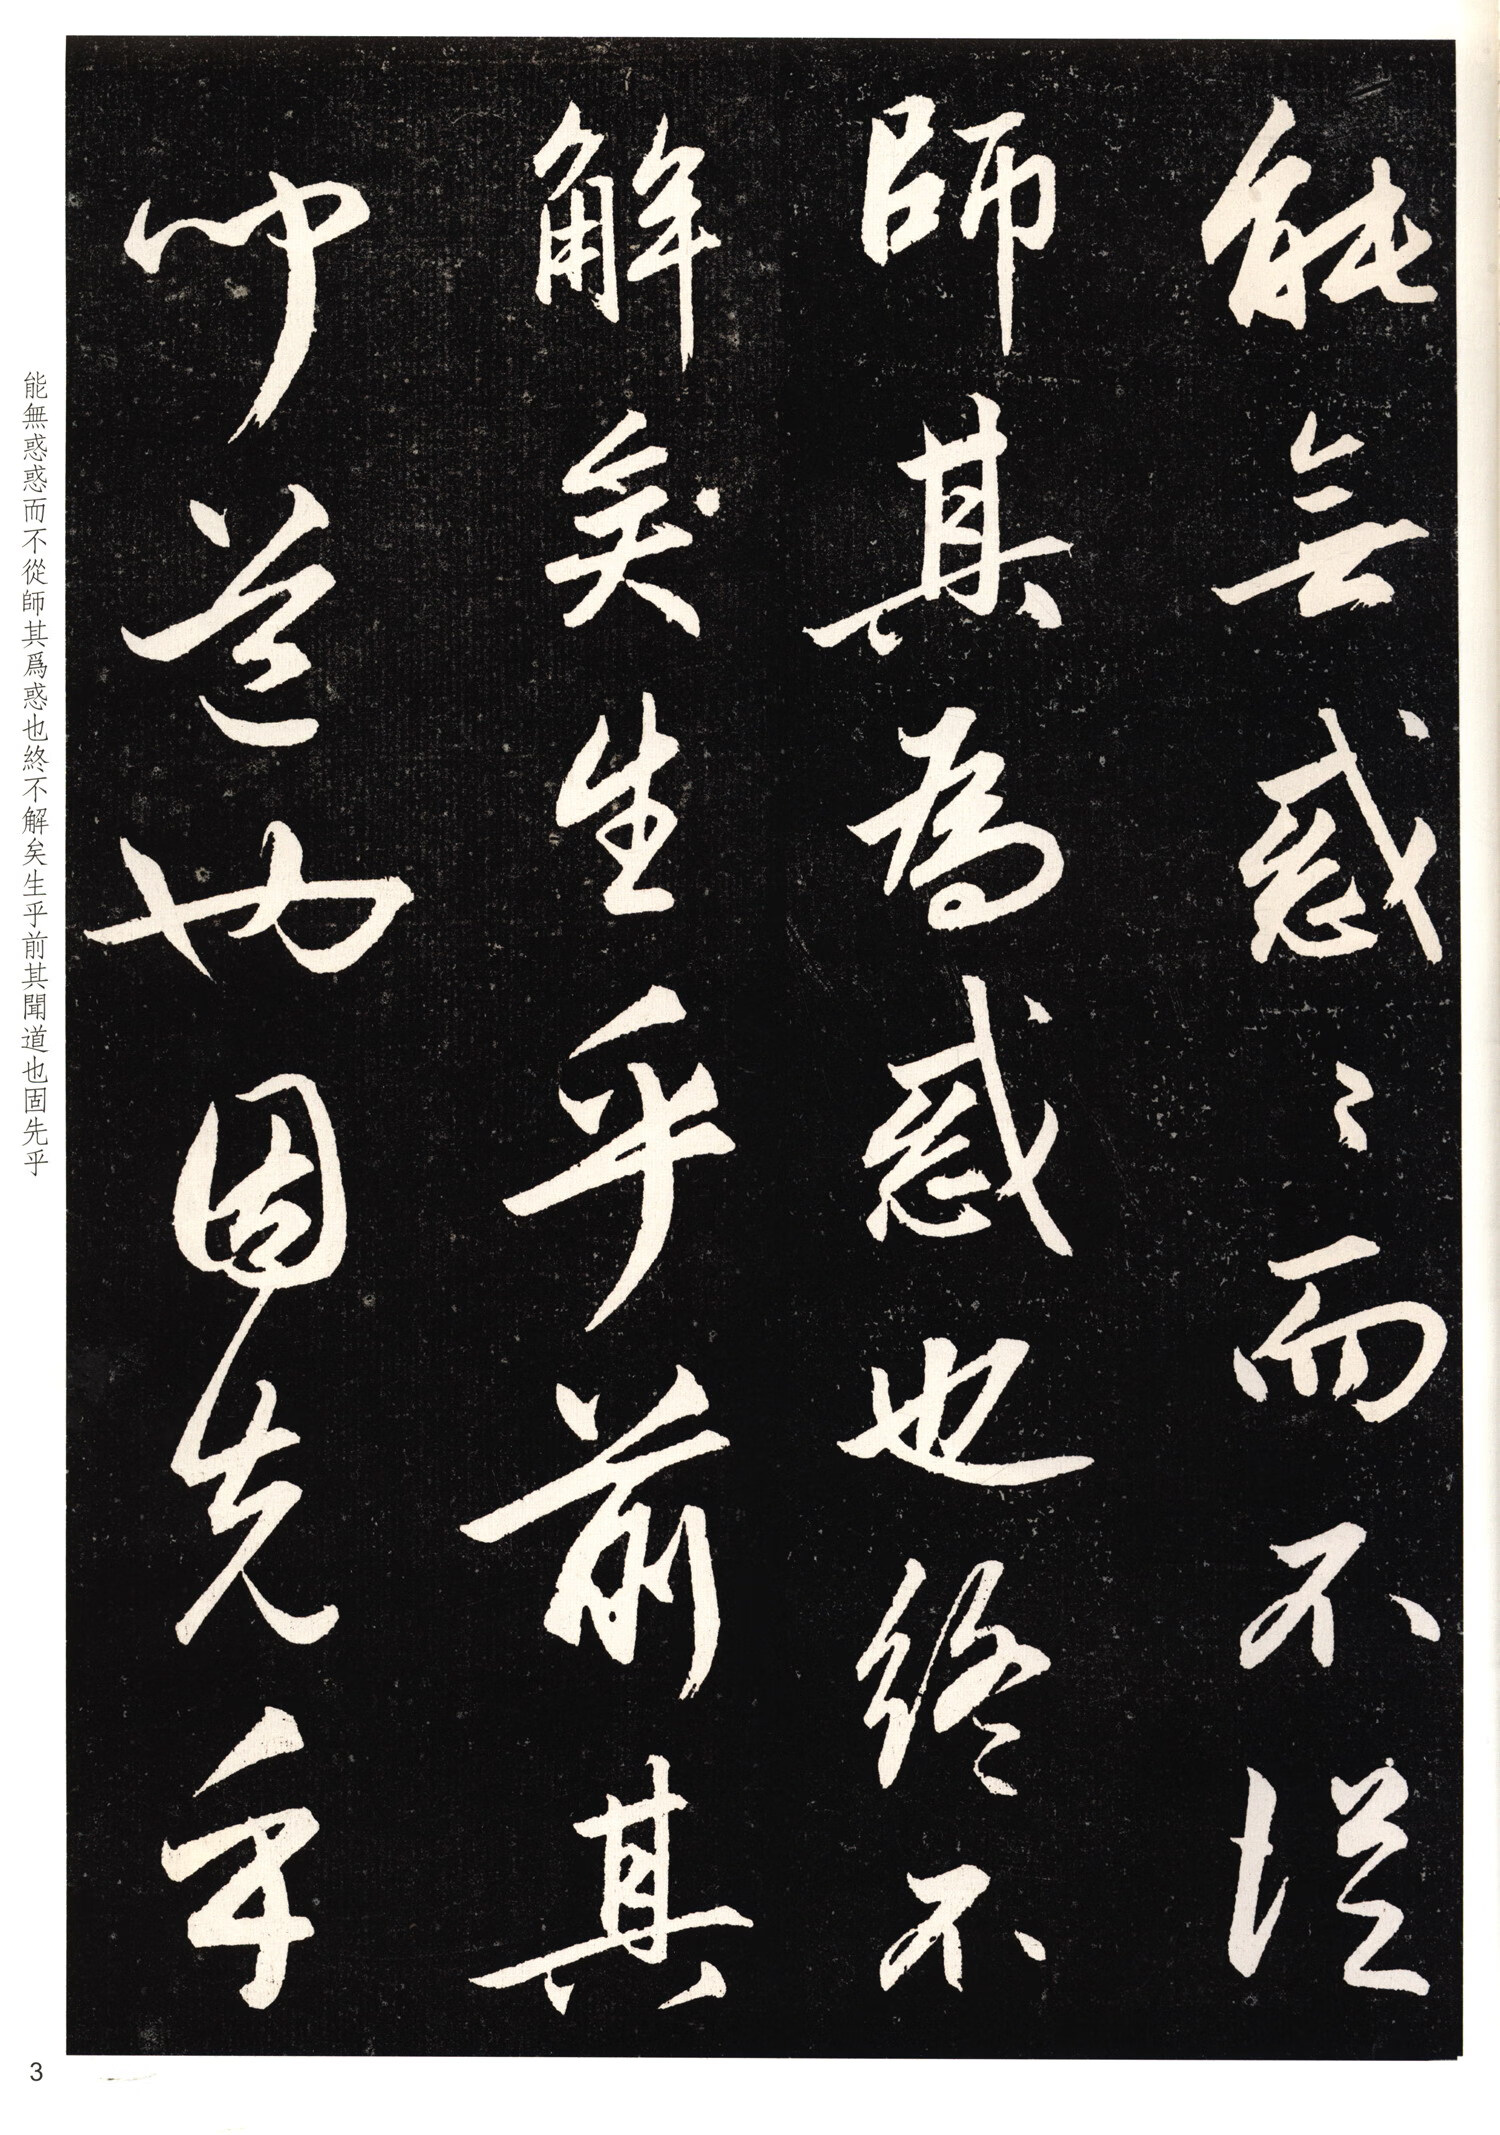 能無惑〻而不從
師其為惑也終不
解矣生乎前其
聞道也固先乎
能無惑惑而不從師其爲惑也終不解矣生乎前其聞道也固先乎
3